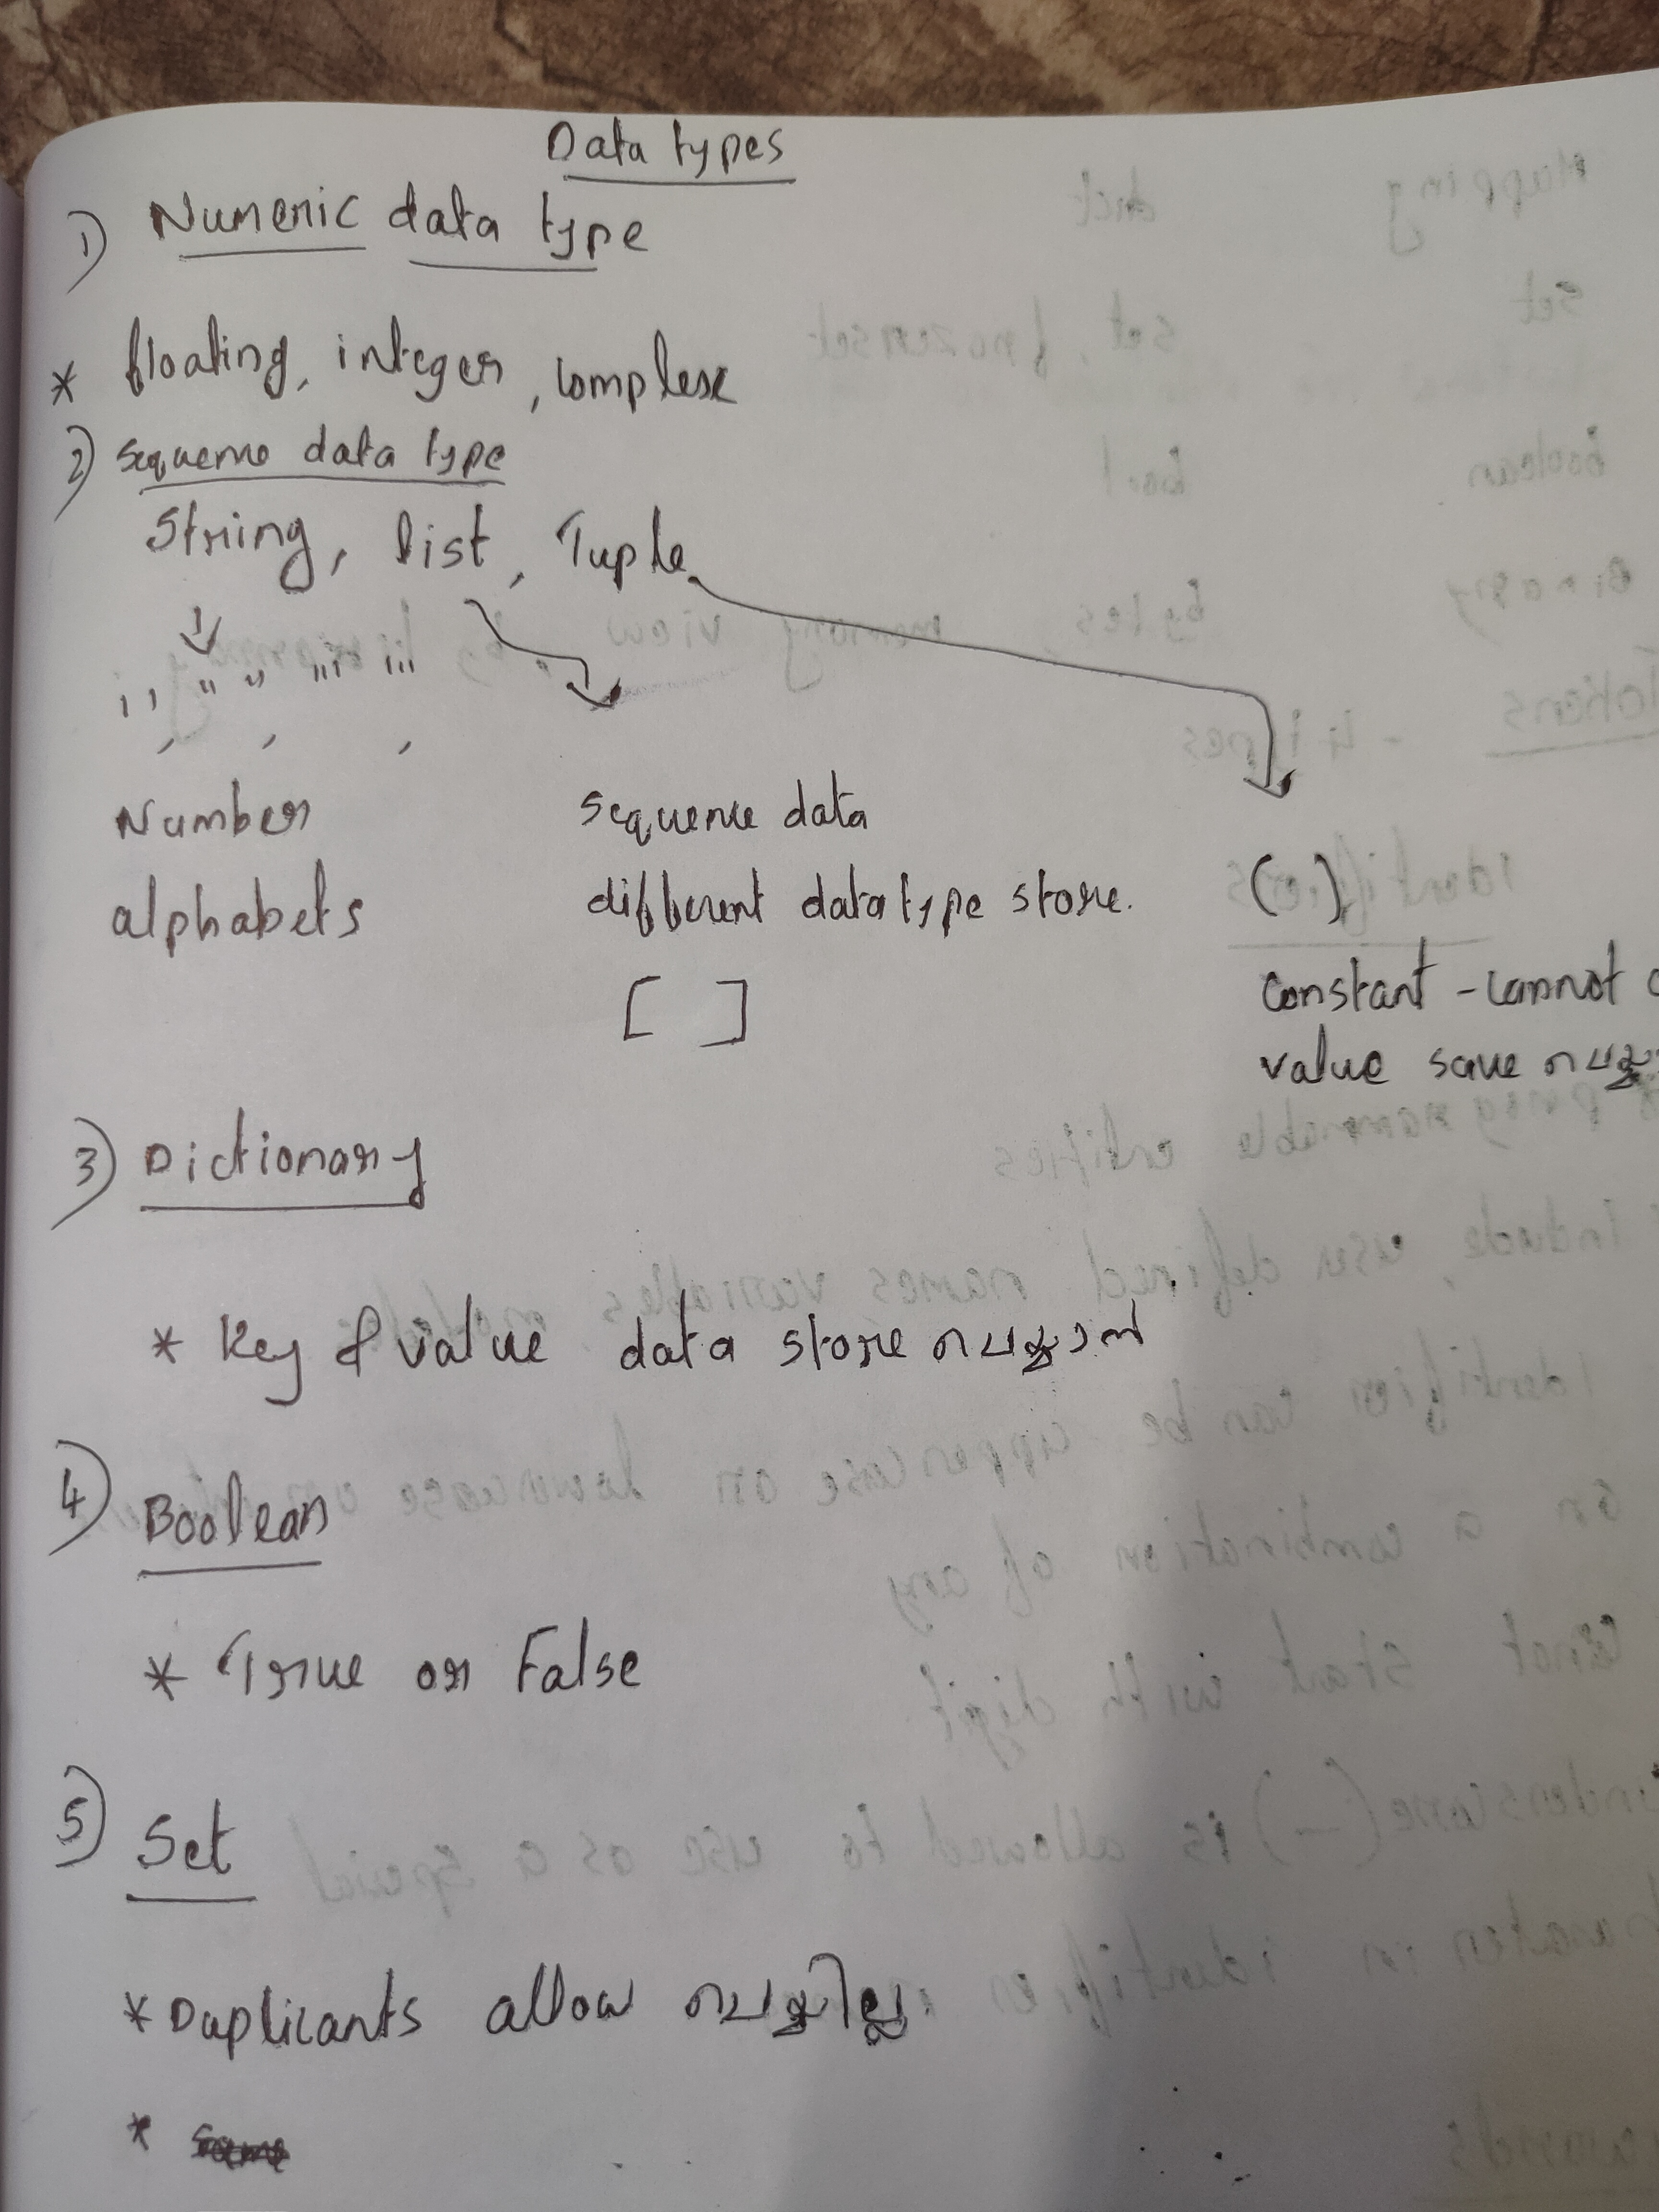 Data types
1) Numeric data type
* floating, integer, complex
2) sequence data type
String, list, Tuple
' ' " " ''' '''
, , ,
Number sequence data
alphabets different datatype store. ( )
[ ] Constant - cannot
value save ചെയ്യ
3) Dictionary
* Key & value data store ചെയ്യാൻ
4) Boolean
* True or False
5) Set
* Duplicants allow ചെയ്യില്ല.
*